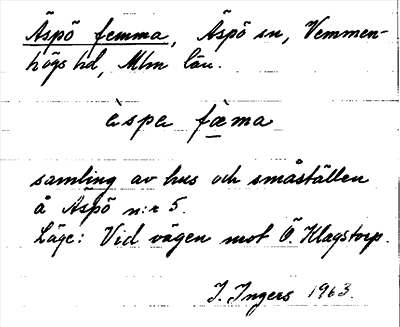 Äspö femma, Äspö sn, Vemmen-
högs hd, Mlm län.
èspe fæma
samling av hus och småställen
å Äspö n:r 5.
Läge: Vid vägen mot Ö. Klagstorp.
I. Ingers 1963.